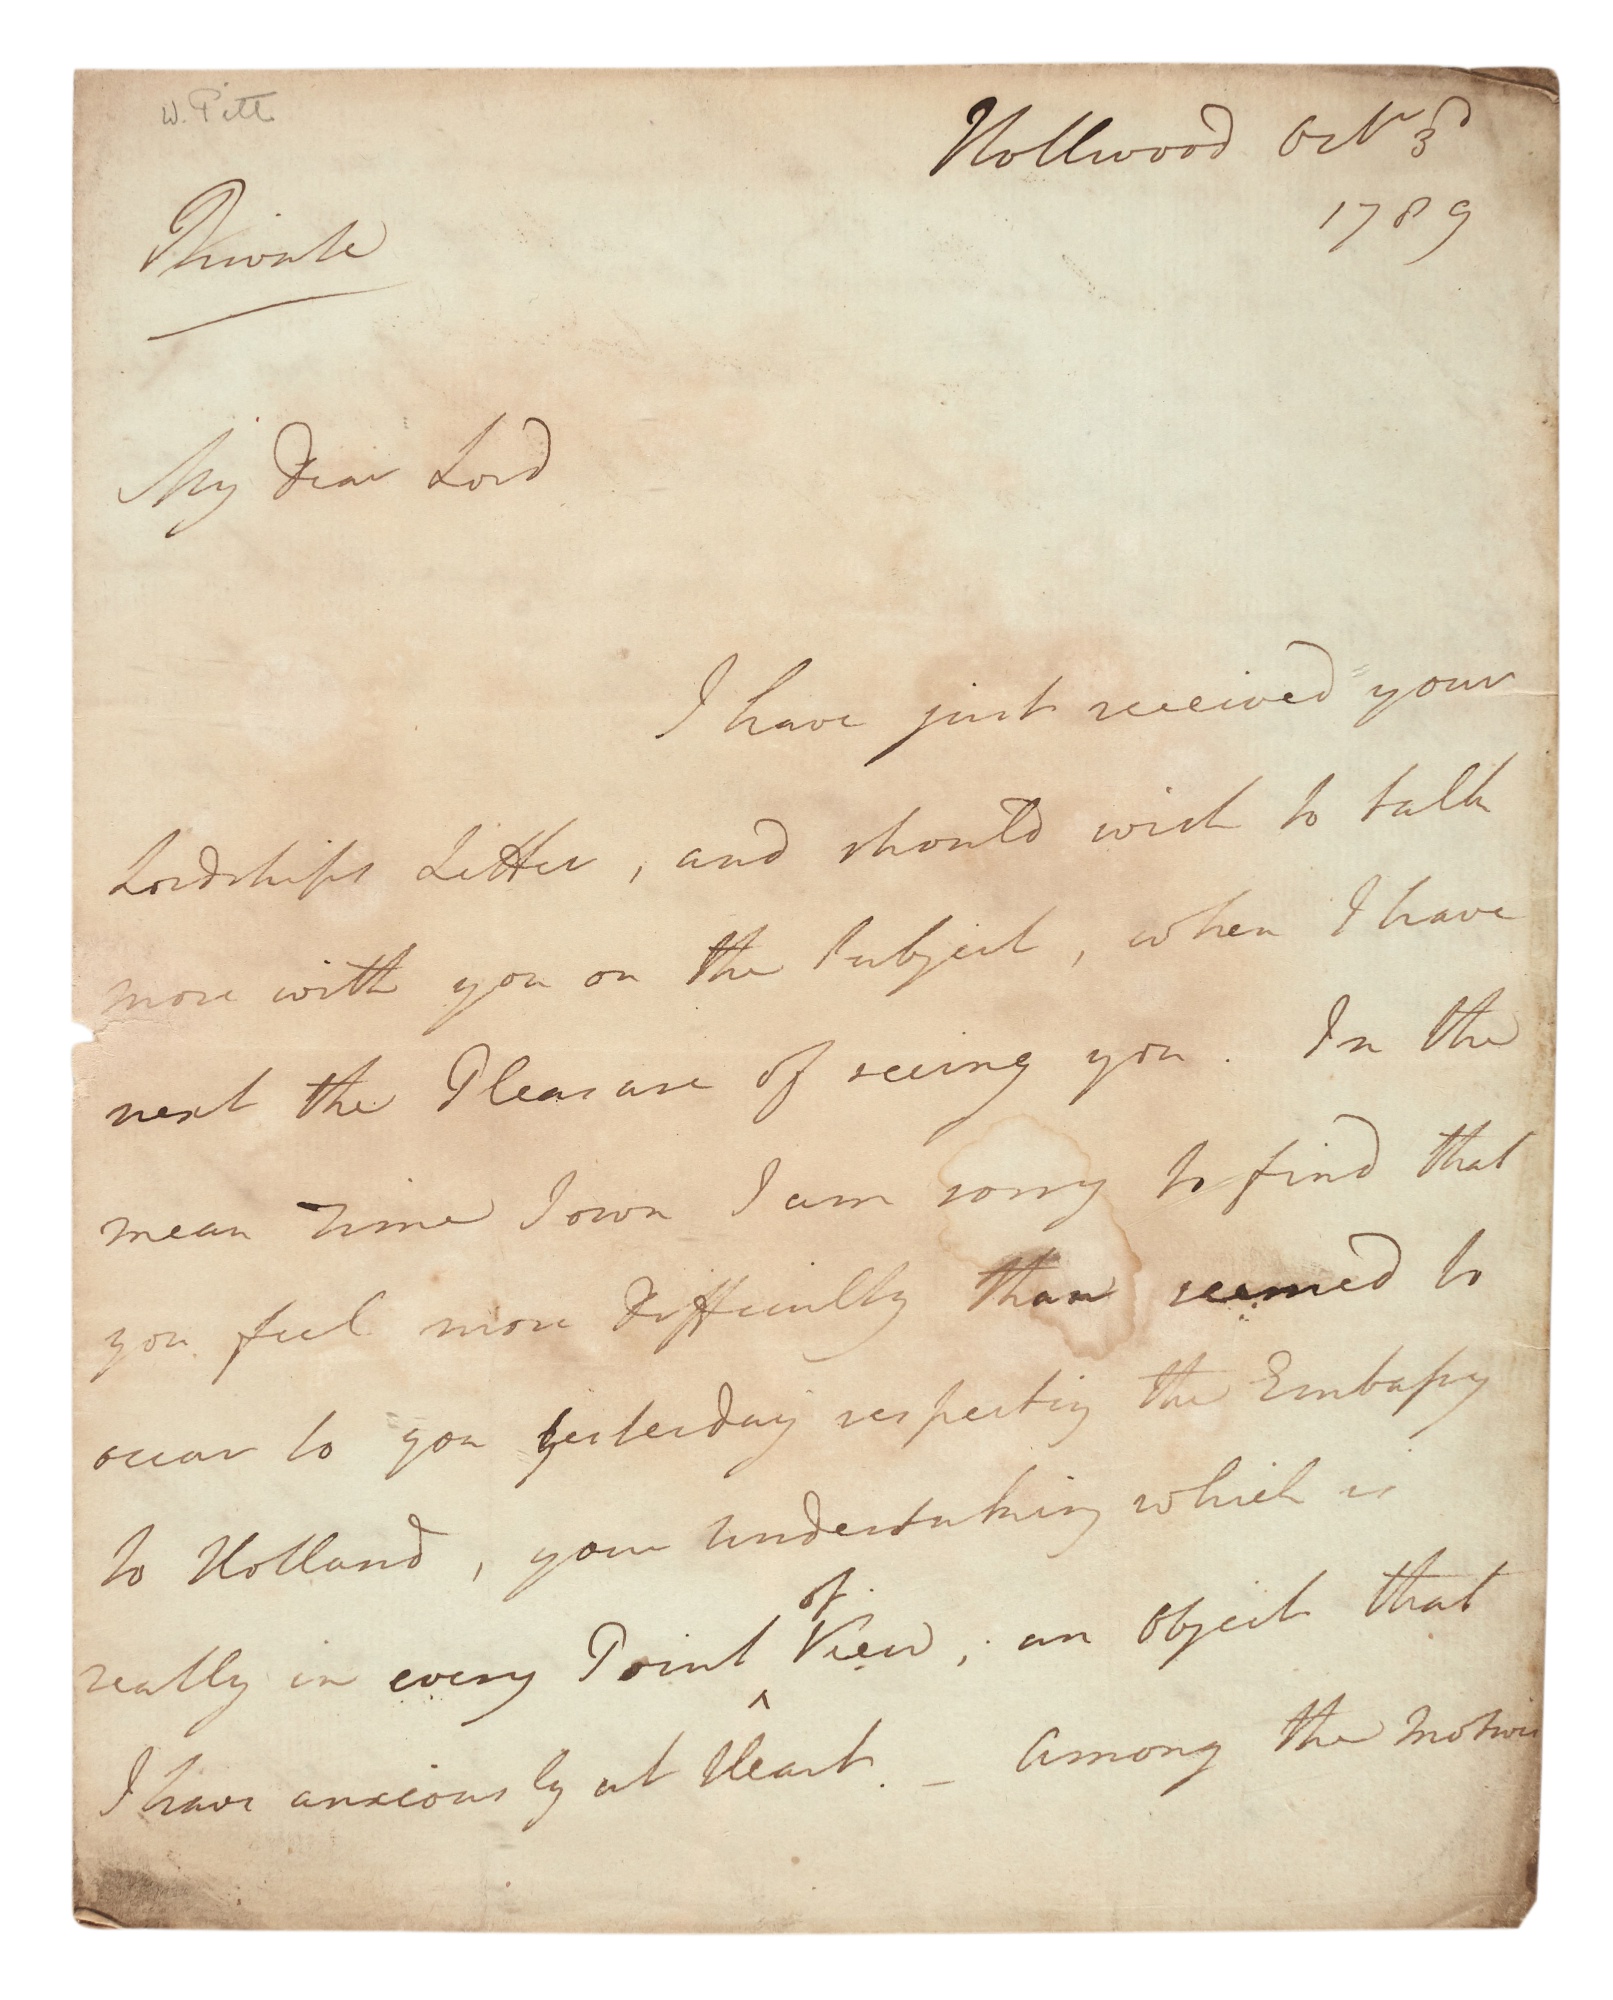 W. Pitt
Hollwood Octr 3d
1789
Private
My Dear Lord
I have just received your
Lordships Letter, and should wish to talk
more with you on the Subject, when I have
next the Pleasure of seeing you. In the
mean Time I own I am sorry to find that
you feel more Difficulty than seemed to
occur to you yesterday respecting the Embassy
to Holland, your undertaking which is
of
really in every Point View, an Object that
^
I have anxiously at Heart. _ Among the Motives